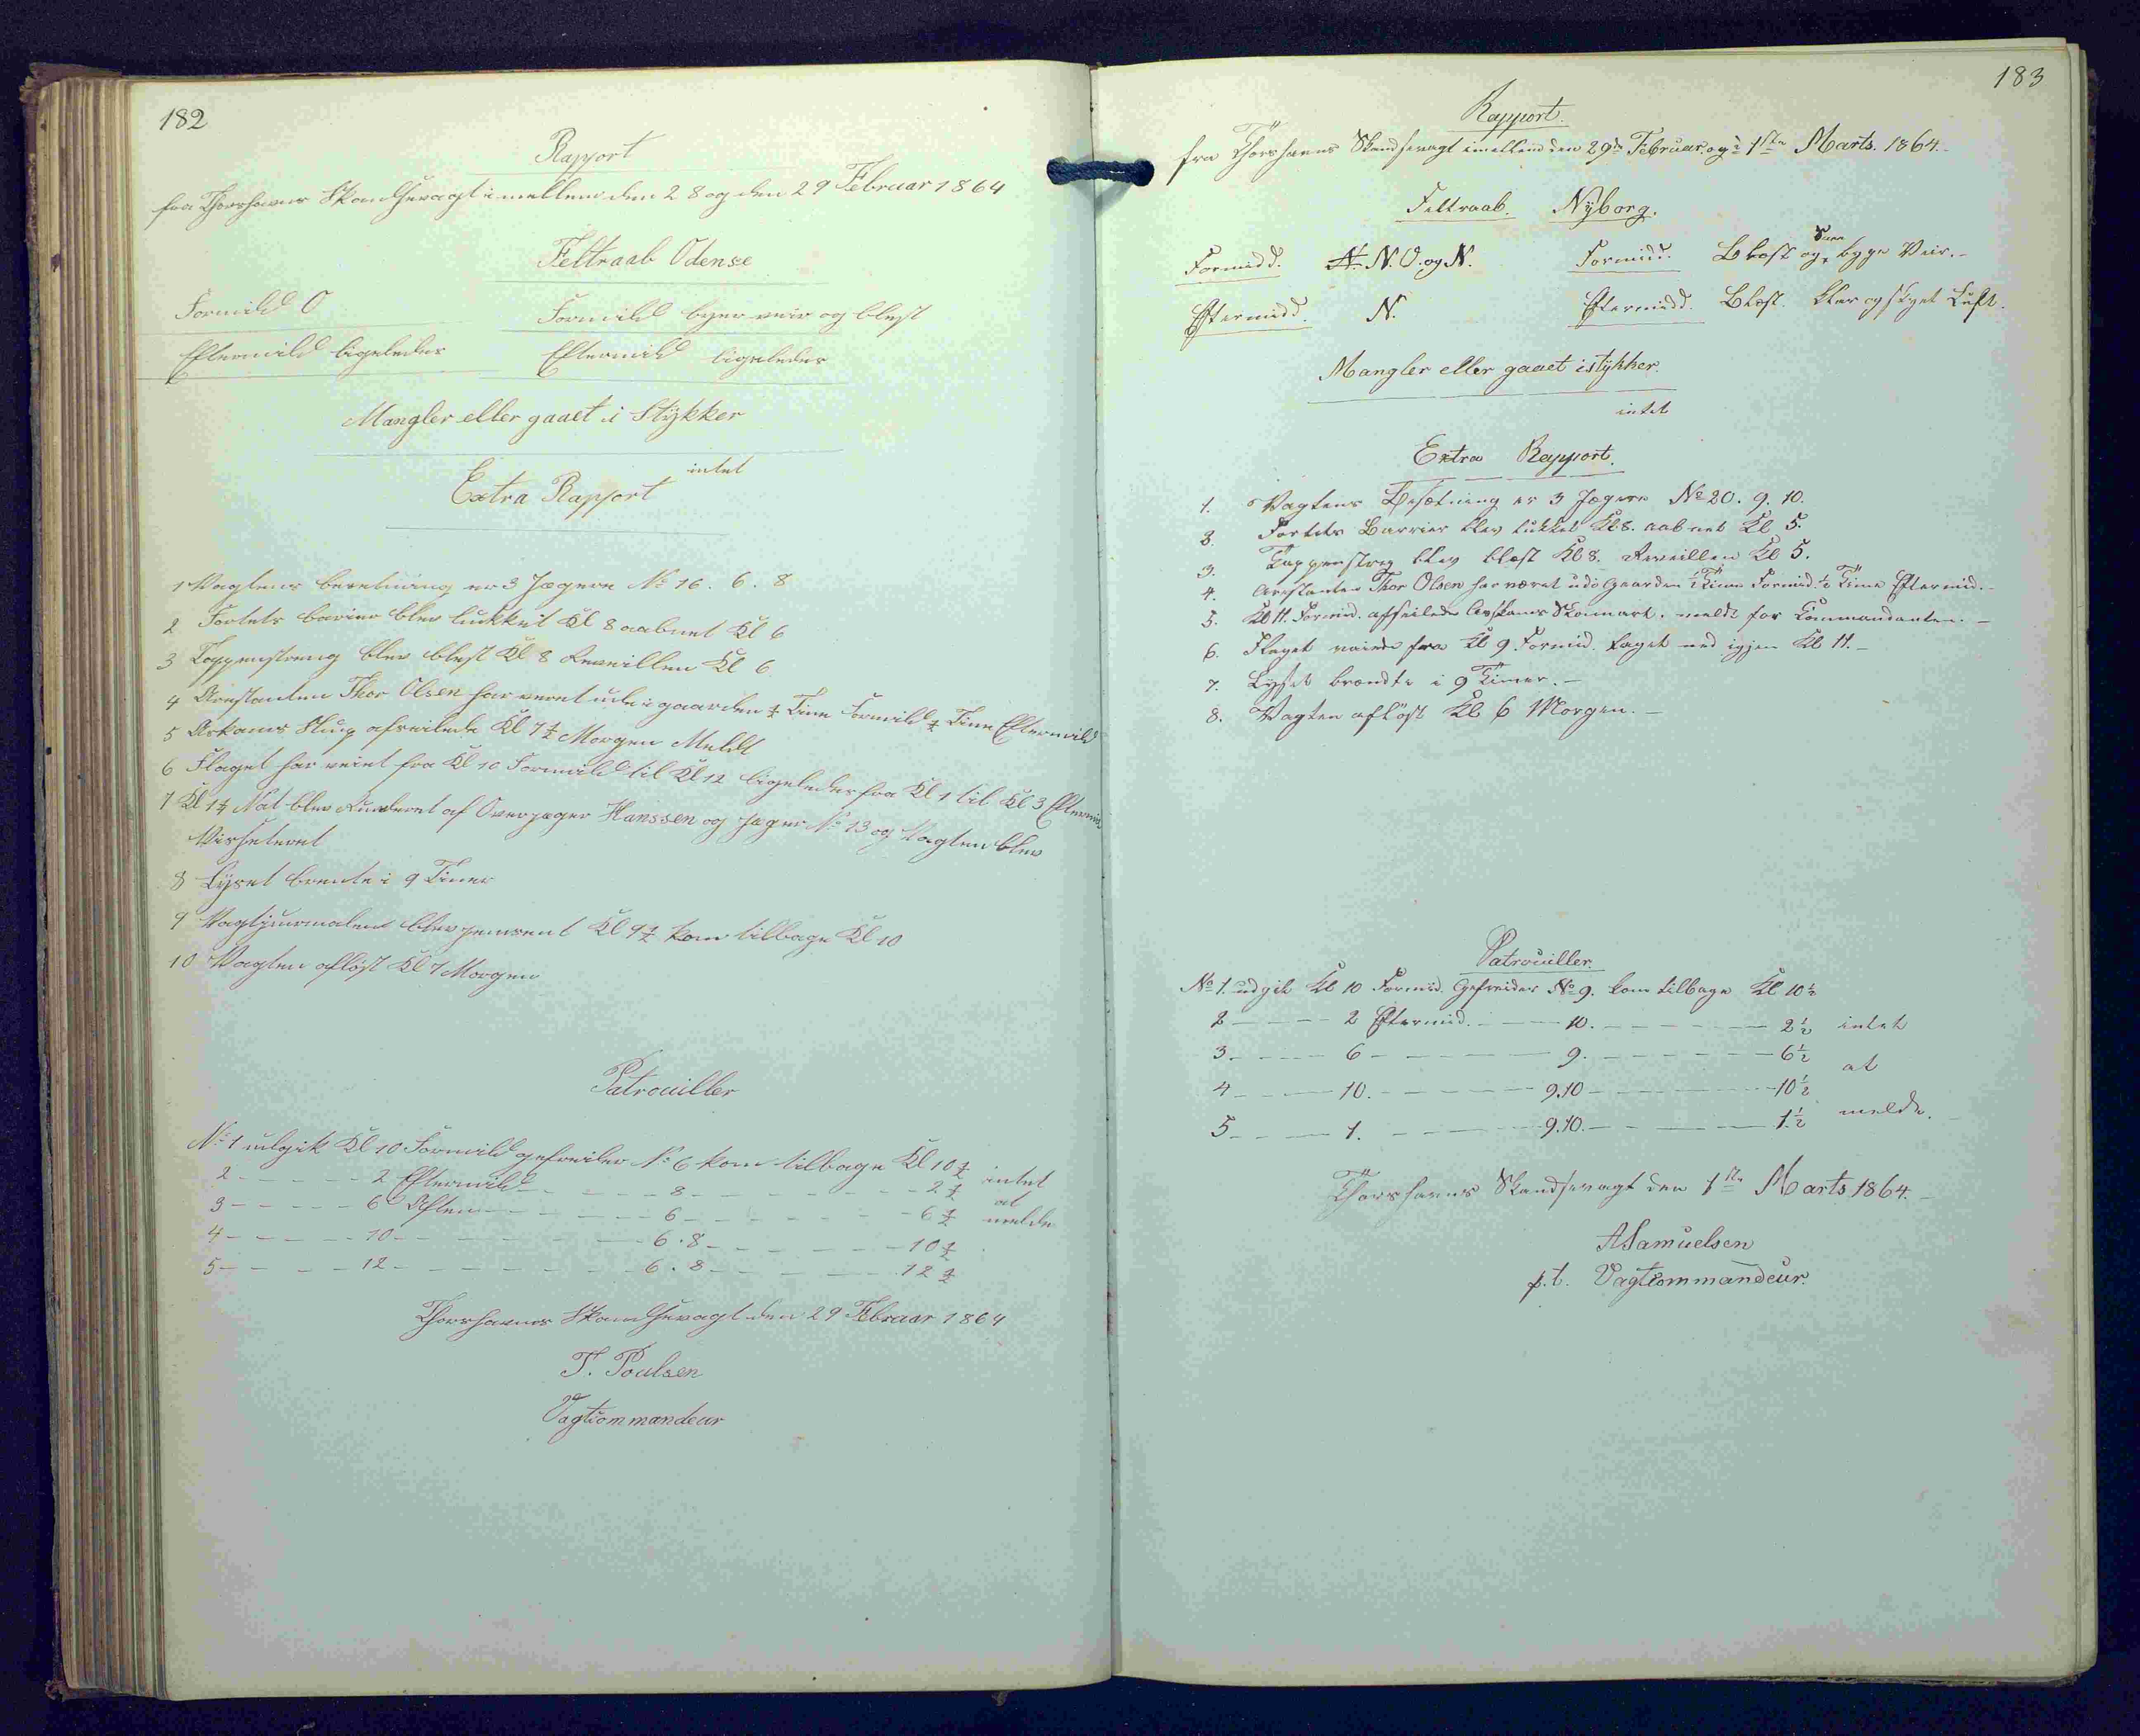 182
Rapport
fra Thorshavns Skandsevagt imellem den 28 og den 29 Februar 1864
Feltraab Odense
Formidd O
Formidd byer veir og blest
Eftermidd ligeledes
Eftermidd ligeledes
Mangler eller gaaet i Stykker
intet
Extra Rapport
1 Vagtens besetning er 3 Jægere No 16. 6. 8
2 Fortets barier blev lukket Kl 8 aabnet Kl 6
3 Tappenstreng blev blest Kl 8 Reveillen Kl 6
4 Arestanten Thor Olsen har veret ude i gaarden ½ Time Formidd ½ Time Eftermidd
5 Slup afseilede Kl 7½ Morgen Meldt
6 Flaget har veiet fra Kl 10 Formidd til Kl 12 ligeledes fra Kl 1 til Kl 3 Eftermid
7 Kl 1½ Nat blev Runderet af Overjæger Hanssen og Jæger No 13 og Vagten blev
Visiteret
8 Lyset brente i 9 Timer
9 Vagtjournalen blev Kl 9½ kom tilbage Kl 10
10 Vagten afløst Kl 7 Morgen
Patrouiller
No 1 udgik Kl 10 Formidd gefreider No 6 kom tilbage Kl 10½ intet
2 - - - - 2 Eftermidd - - - - 8 - - - - - - 2½ at
3 - - - - 6 Aften - - - - 6 - - - - - - 6½ melde
4 - - - - 10 - - - - - 6. 8 - - - - - 10½
5 - - - - 12 - - - - - 6. 8 - - - - - 12½
Thorshavns Skandsevagt den 29 Februar 1864
T. Poulsen
Vagtcommandeur
183
Rapport.
fra Thorshavns Skandsevagt imellem den 29de Februar og 1ste Marts. 1864.
Feltraab. Nyborg.
Formidd. N. O. og N. Formidd. Blæst og Snee byge Veir.
Eftermidd. N. Eftermidd. Blæst. klar og skyet Luft.
Mangler eller gaaet istykker.
intet
Extra Rapport.
1. Vagtens Besætning er 3 Jægere No 20. 9. 10.
2. Fortets Barrier blev lukket Kl 8. aabnet Kl 5.
3. Tappenstreg blev blæst Kl 8. Reveillen Kl 5.
4. Arestanten Thor Olsen har været ude i Gaarden ½ Time Formid. ½ Time Eftermid.
5. Kl 11. Formid. afseilede meldt for Commandanten.
6. Flaget vaiede fra Kl 9 Formid. taget ned igjen Kl 11.
7. Lyset brændte i 9 Timer.
8. Vagten afløst Kl 6 Morgen.
Patrouiller.
No 1. udgik Kl 10 Formid. Gefreider No 9. kom tilbage Kl 10½
2 - - - 2 Eftermid. - - 10. - - - - - 2½ intet
3. - - - 6 - - - - 9. - - - - - 6½ at
4 - - - 10. - - - - 9.10 - - - - - 10½
5 - - - 1. - - - - 9.10. - - - - - 1½ melde.
Thorshavns Skandsevagt den 1ste Marts 1864.
A Samuelsen
p. t. Vagtcommandeur.